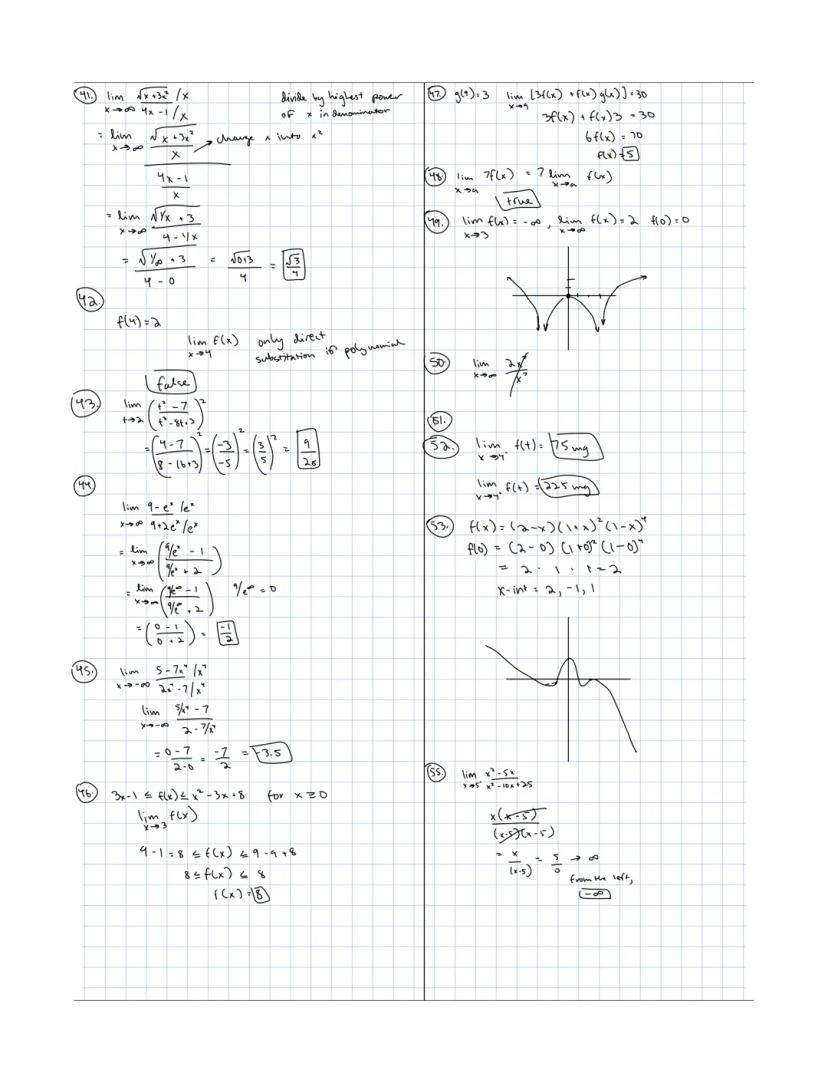 41. lim x→∞ √x+3x² /x / 4x-1 /x divide by highest power
of x in denominator
= lim x→∞ √x+3x² / x → change x into x²
4x-1 / x
= lim x→∞ √1/x + 3 / 4-1/x
= √1/∞ + 3 / 4-0 = √0+3 / 4 = √3 / 4
42.
f(4)=2
lim x→4 f(x) only direct
substitution if polynomial
false
43. lim t→2 (t²-7 / t³-8t+3)²
= (4-7 / 8-16+3)² = (-3 / -5)² = (3/5)² = 9/25
44.
lim x→∞ 9-eˣ /eˣ / 9+2eˣ /eˣ
= lim x→∞ (9/eˣ - 1 / 9/eˣ + 2)
= lim x→∞ (9/e^∞ - 1 / 9/e^∞ + 2) 9/e^∞ = 0
= (0-1 / 0+2) = -1/2
45. lim x→-∞ 5-7x⁴ /x⁴ / 2x⁴-7 /x⁴
lim x→-∞ 5/x⁴ - 7 / 2-7/x⁴
= 0-7 / 2-0 = -7/2 = -3.5
46. 3x-1 ≤ f(x) ≤ x²-3x+8 for x≥0
lim x→3 f(x)
9-1=8 ≤ f(x) ≤ 9-9+8
8 ≤ f(x) ≤ 8
f(x)=8
47. g(9)=3 lim x→9 [3f(x) + f(x)g(x)]=30
3f(x) + f(x)3 = 30
6f(x) = 30
f(x)=5
48. lim x→a 7f(x) = 7 lim x→a f(x)
true
49. lim x→3 f(x) = -∞, lim x→∞ f(x)=2 f(0)=0
50. lim x→∞
51.
52. lim x→4⁻ f(t) = 75 mg
lim x→4⁺ f(t) = 225 mg
53. f(x) = (2-x)(1+x)²(1-x)⁴
f(0) = (2-0)(1+0)²(1-0)⁴
= 2 · 1 · 1 = 2
x-int = 2, -1, 1
55. lim x→5⁻ x²-5x / x²-10x+25
x(x-5) / (x-5)(x-5)
= x / (x-5) = 5/0 → ∞
from the left,
-∞